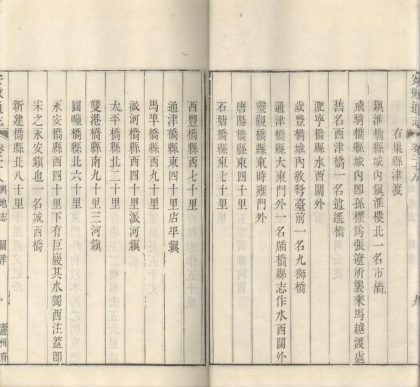 右巢縣津渡
鎮淮橋縣城內鎮淮樓北一名市橋
飛騎橋縣城內卽孫權爲張遼所襲乘馬越渡處
舊名西津橋一名逍遙橋
淝寧橋縣水西關外
歲豐橋縣城內敎弩臺前一名九獅橋
通津橋縣大東門外一名 橋縣志作水西關外
靈觀橋縣東時雍門外
唐陽橋縣東四十里
石塘橋縣東七十里
西豐橋縣西七十里
通津橋縣東四十里店牟鎮
馬革橋縣西九十里
派河橋縣西四十里派河鎮
太平橋縣北二十里
雙港橋縣南九十里三河鎮
圓疃橋縣北六十里
永安橋縣西四十里下有巨巖其水獨西注蓋卽
宋之永安鎮也一名城西橋
新建橋縣北八十里
安徽通志
輿地志 關津
廬州府